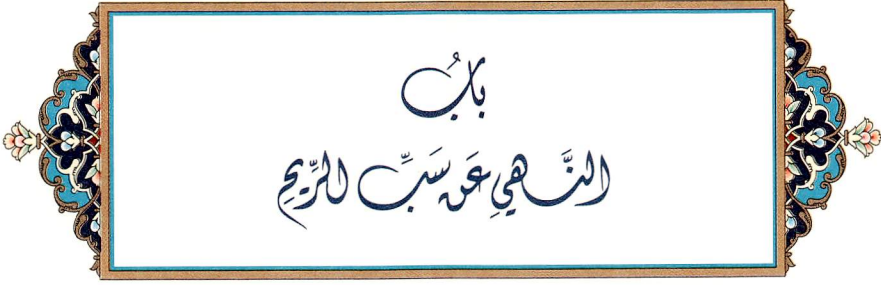 بَابُ
النَّهْيِ عَنْ سَبِّ الرِّيحِ